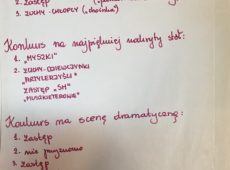 2. ZASTĘP
3. ZUCHY-CHŁOPCY (
Konkurs na najpiękniej nakryty stół:
1. „MYSZKI”
2. ZUCHY-DZIEWCZYNKI
„ARTYLERZYŚLI”
ZASTĘP „SM”
„MUSZKIETEROWIE”
Konkurs na scenę dramatyczną:
1. Zastęp
2. nie przyznano
3. Zastęp